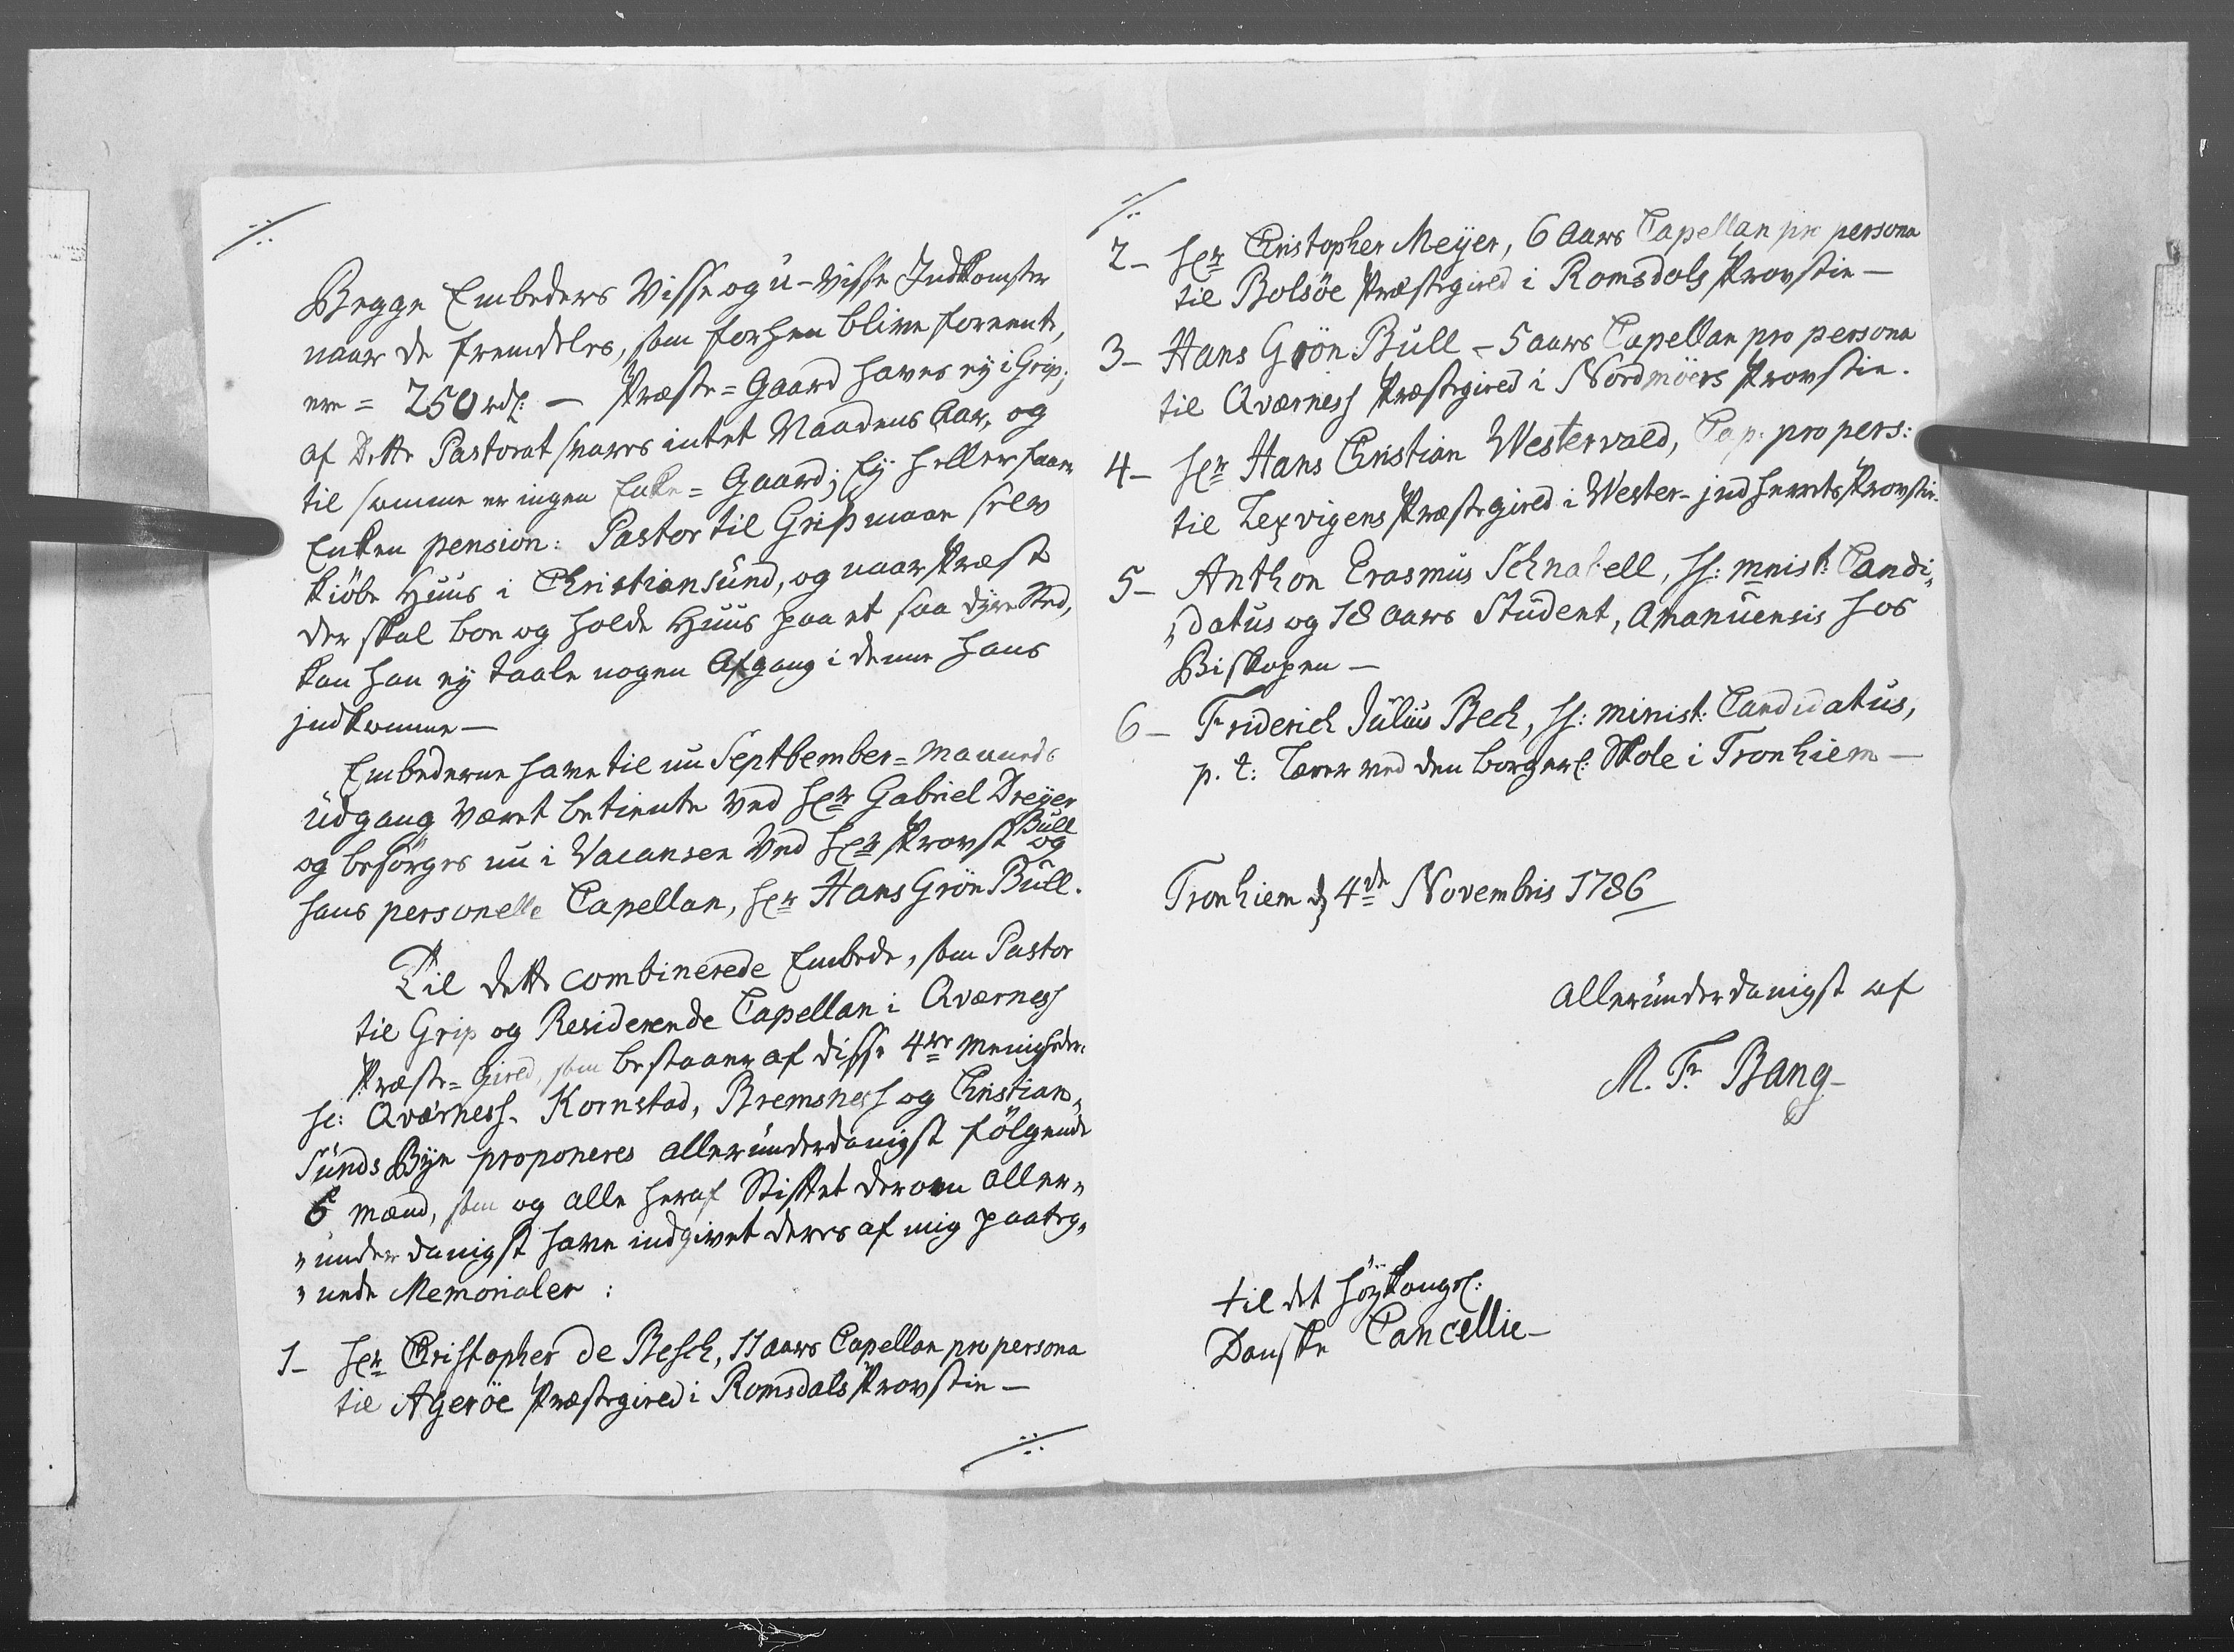 Begge Embeders Visse og u-visse Indkomster
naar de fremdeles, som forhen blive forente,
ere = 250 rdl: - Præste=Gaard haves ey i Grip;
af Dette Pastorat svares intet Naadens Aar, og
til samme er ingen Enke=Gaard; Ey heller faar
Enken pension: Pastor til Grip maae selv
kiöbe Huus i Christiansund, og naar Præst
der skal boe og holde Huus paa et saa dyre Sted,
kan han ey taale nogen Afgang i denne hans
indkomme -
Embederne have til nu Septbember=Maaneds
Udgang været betiente ved Hr Gabriel Dreyer
og besörges nu i Vacansen ved Hr Provst Bull og
hans personelle Capellan, Hr Hans Grön Bull.
Til dette combinerede Embede, som Pastor
til Grip og Residerende Capellan i Qværness
Præste=Gield, som bestaaer af disse 4re Menigheder
sc: Qværness, Kornstad, Bremsness og Christian„
sunds Bye proponeres allerunderdanigst fölgende
6 Mænd, som og alle heraf Stiftet derom aller„
„underdanigst have indgivet deres af mig paateg„
„nede Memorialer :
1- Hr Christopher de Besch, 11 aars Capellan pro persona
til Ageröe Præstegield i Romsdals Provstie -
2- Hr Christopher Meyer, 6 aars Capellan pro persona
til Bolsöe Præstegield i Romsdals Provstie -
3- Hans Grön Bull - 5 aars Capellan pro persona
til Qværness Præstegield i Nordmöers Provstie.
4- Hr Hans Christian Westervald, Cap. pro pers:
til Lexvigens Præstegield i Wester-jndherreds Provstie.
5- Anthon Erasmus Schnabell, SS: minist: Candi„
„datus og 18 aars Student, Amanuensis hos
Biskopen -
6- Friderich Julius Bech, SS: minist: Candidatus,
p. t: Lærer ved den borgerl: Skole i Tronhiem -
Tronhiem d 4de Novembris 1786
Allerunderdanigst af
M. Fr Bang
til det höykongel:
Danske Cancellie -